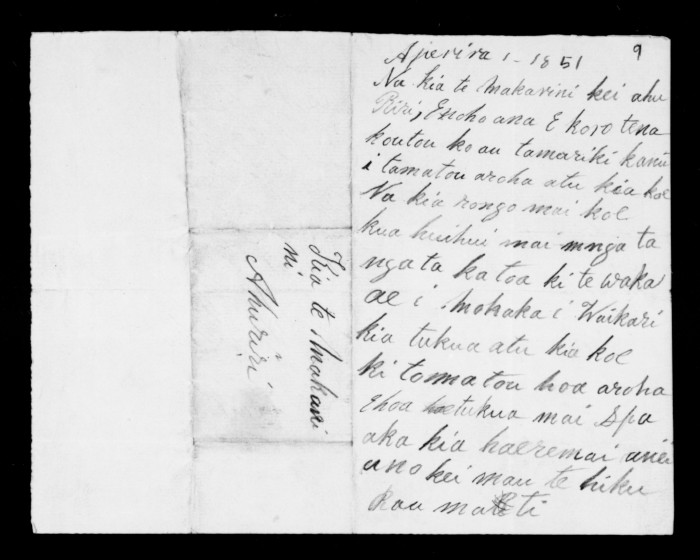 9
Aperira 1 - 1851
Na kia te makarini kei ahu
Riri, E noho ana E koro tena
koutou ko au tamariki kanui
i tamatou aroha atu kia koe
Na kia rongo mai koe
kua huihui mai mnga ta
ngata katoa ki te waka
ae i mohaka i Waikari
kia tukua atu kia koe
ki tomatou hoa aroha
Ehoa tukua mai Spa
aka kia haeremai anei
ano kei mau te hiku
Rau mati
Kia te Makari
ni
Ahuriri